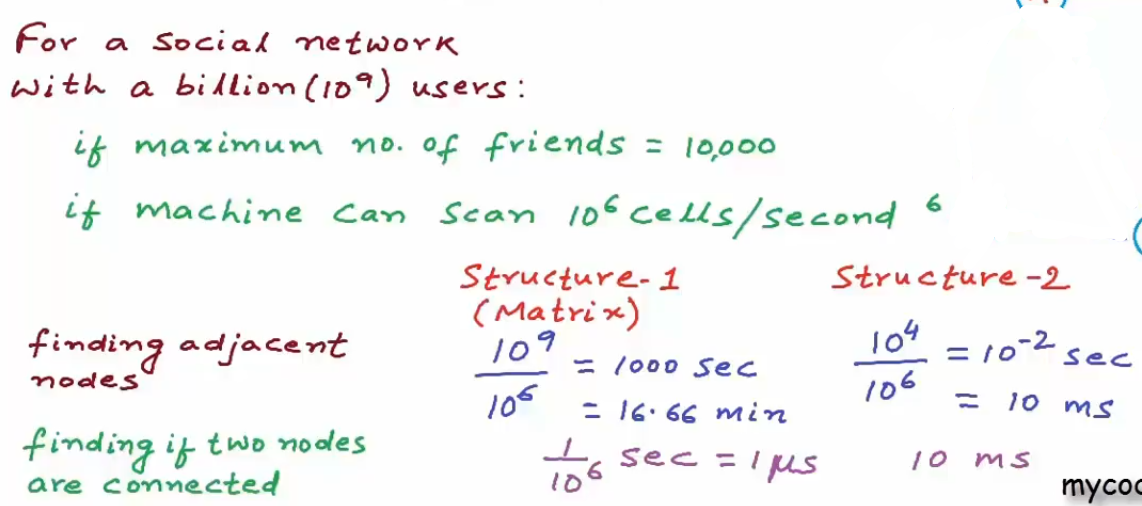 For a social network
with a billion (10⁹) users:
if maximum no. of friends = 10,000
if machine can scan 10⁶ cells/second 6
Structure-1 Structure-2
(Matrix)
finding adjacent nodes
10⁹/10⁶ = 1000 sec
= 16.66 min
10⁴/10⁶ = 10⁻² sec
= 10 ms
finding if two nodes
are connected
1/10⁶ sec = 1 μs 10 ms